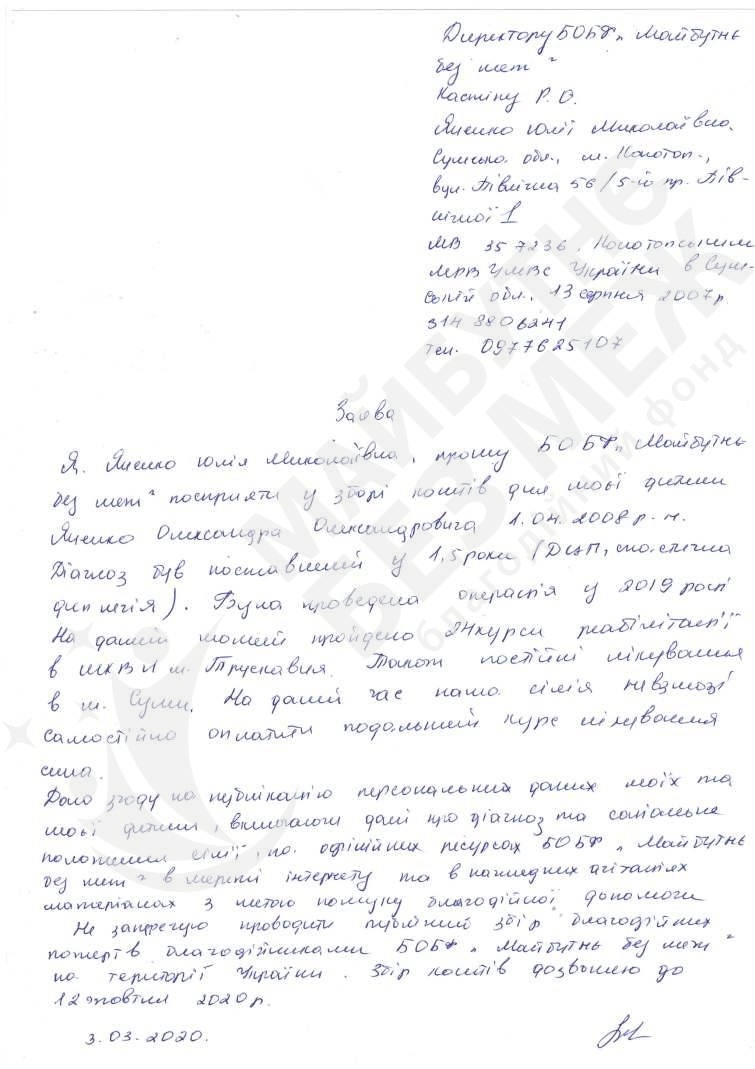 Директору БОБФ „Майбутнє
без меж"
Кастіну Р. О.
Яненко Юлії Миколаївна.
Сумська обл., м. Конотоп.,
вул. Північна 56 / 5-ю пр. Пів-
нічної 1
МВ 357236. Конотопським
МРВ УМВС України в Сум-
ській обл., 13 серпня 2007р.
3148806241
тел. 0977625107
Заява
Я, Яненко Юлія Миколаївна, прошу БОБФ „Майбутнє
без меж" посприяти у зборі коштів для моєї дитини
Яненко Олександра Олександровича 1.04.2008 р.н.
Діагноз був поставлений у 1,5 роки (ДЦП, спастична
диплегія). Була проведена операція у 2019 році
На даний момент пройдено 24 курси реабілітації
в м. Трускавця. Також постійні лікування
в м. Суми. На даний час наша сім'я невзмозі
самостійно оплатити подальший курс лікування
сина.
Даю згоду на публікацію персональних даних моїх та
моєї дитини, включаючи дані про діагноз та соціальне
положення сім'ї, на офіційних ресурсах БОБФ „Майбутнє
без меж" в мережі інтернету та в наглядних агітаціях
матеріалах з метою пошуку благодійної допомоги
Не заперечую проводити публічний збір благодійних
пожертв благодійниками БОБФ „Майбутнє без меж"
на території України. Збір коштів дозволяю до
12 жовтня 2020р.
3.03.2020.
МАЙБУТНЄ
БЕЗ МЕЖ
благодійний фонд